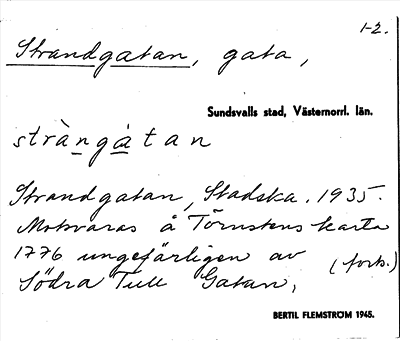 1-2.
Strandgatan, gata,
Sundsvalls stad, Västernorrl. län.
stràngàtan
Strandgatan, Stadska. 1935.
Motsvaras å Törnstens karta
1776 ungefärligen av
Södra Tull Gatan,
(forts.)
BERTIL FLEMSTRÖM 1945.